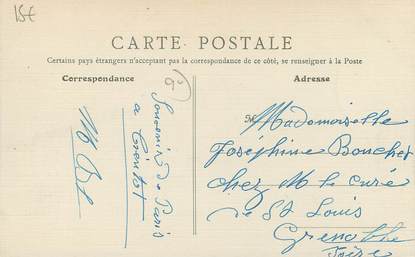 15€
CARTE POSTALE
Certains pays étrangers n'acceptant pas la correspondance de ce côté, se renseigner à la Poste
Correspondance
Adresse
Souvenir de Paris
a bientot
M
Mademoiselle
Joséphine Bouchet
chez M le curé
de St Louis
Grenoble
Isère